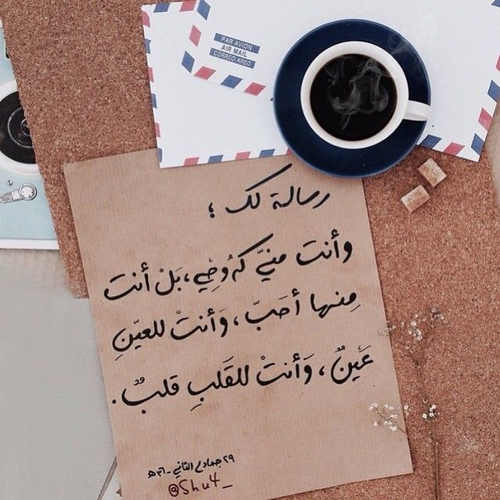 PAR AVION
AIR MAIL
CORREO AEREO
رسالة لك ؛
وأنت منيّ كرُوحِي، بَلْ أنت
مِنها أحَبّ، وَأنتْ للعيّنِ
عَينٌ، وَأنتْ للقَلبِ قلبٌ.
٢٩ جمادى الثاني - ١٤٣٦هـ
@Shu4_